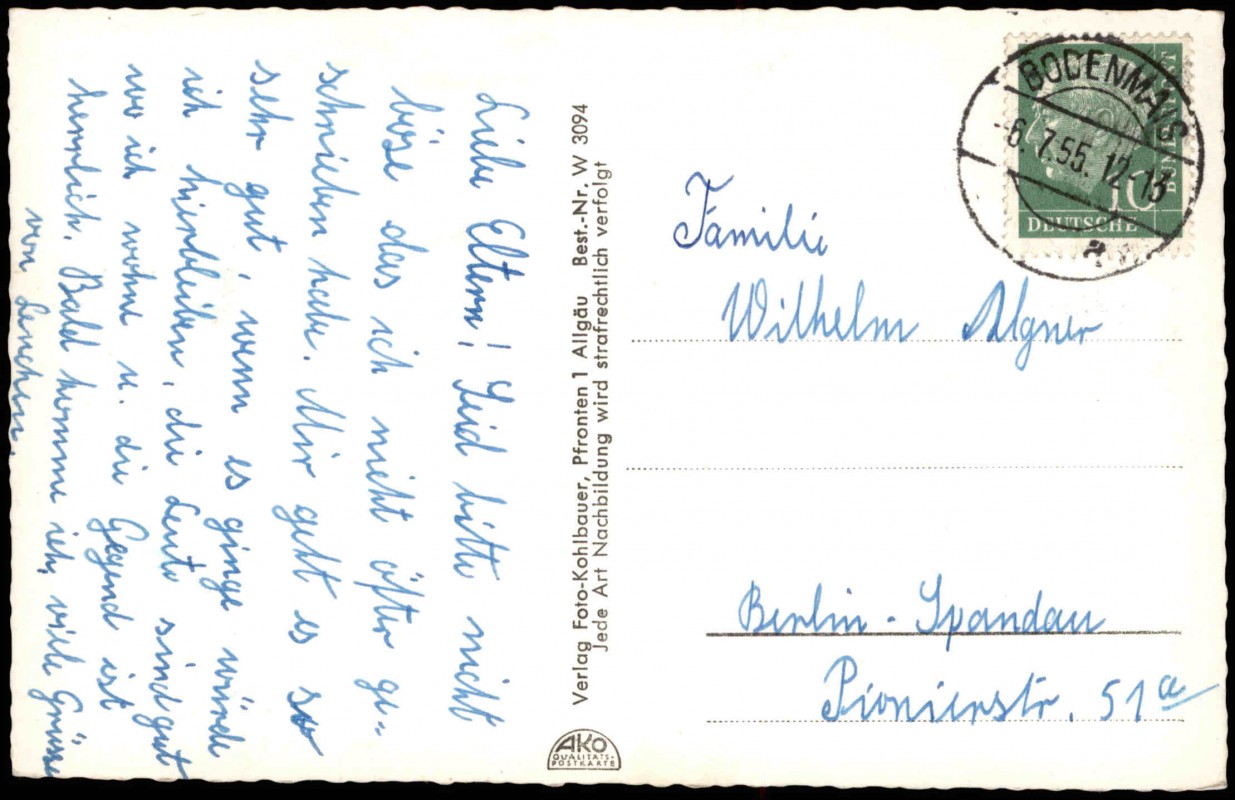 Liebe Eltern! Seid bitte nicht
böse das ich nicht öfter ge-
schrieben habe. Mir geht es so
sehr gut, wenn es ginge würde
ich hierbleiben, die Leute sind gut
wo ich wohne u. die Gegend ist
herrlich. Bald komme ich, viele Grüsse
von Lenchen.
Verlag Foto-Kohlbauer, Pfronten 1 Allgäu Best.-Nr. W 3094
Jede Art Nachbildung wird strafrechtlich verfolgt
AKO
QUALITÄTS-
POSTKARTE
BODENMAIS
-6.7.55.12-13
a
10
DEUTSCHE
BUNDESPOST
Familie
Wilhelm Algner
Berlin - Spandau
Pionierstr. 51a